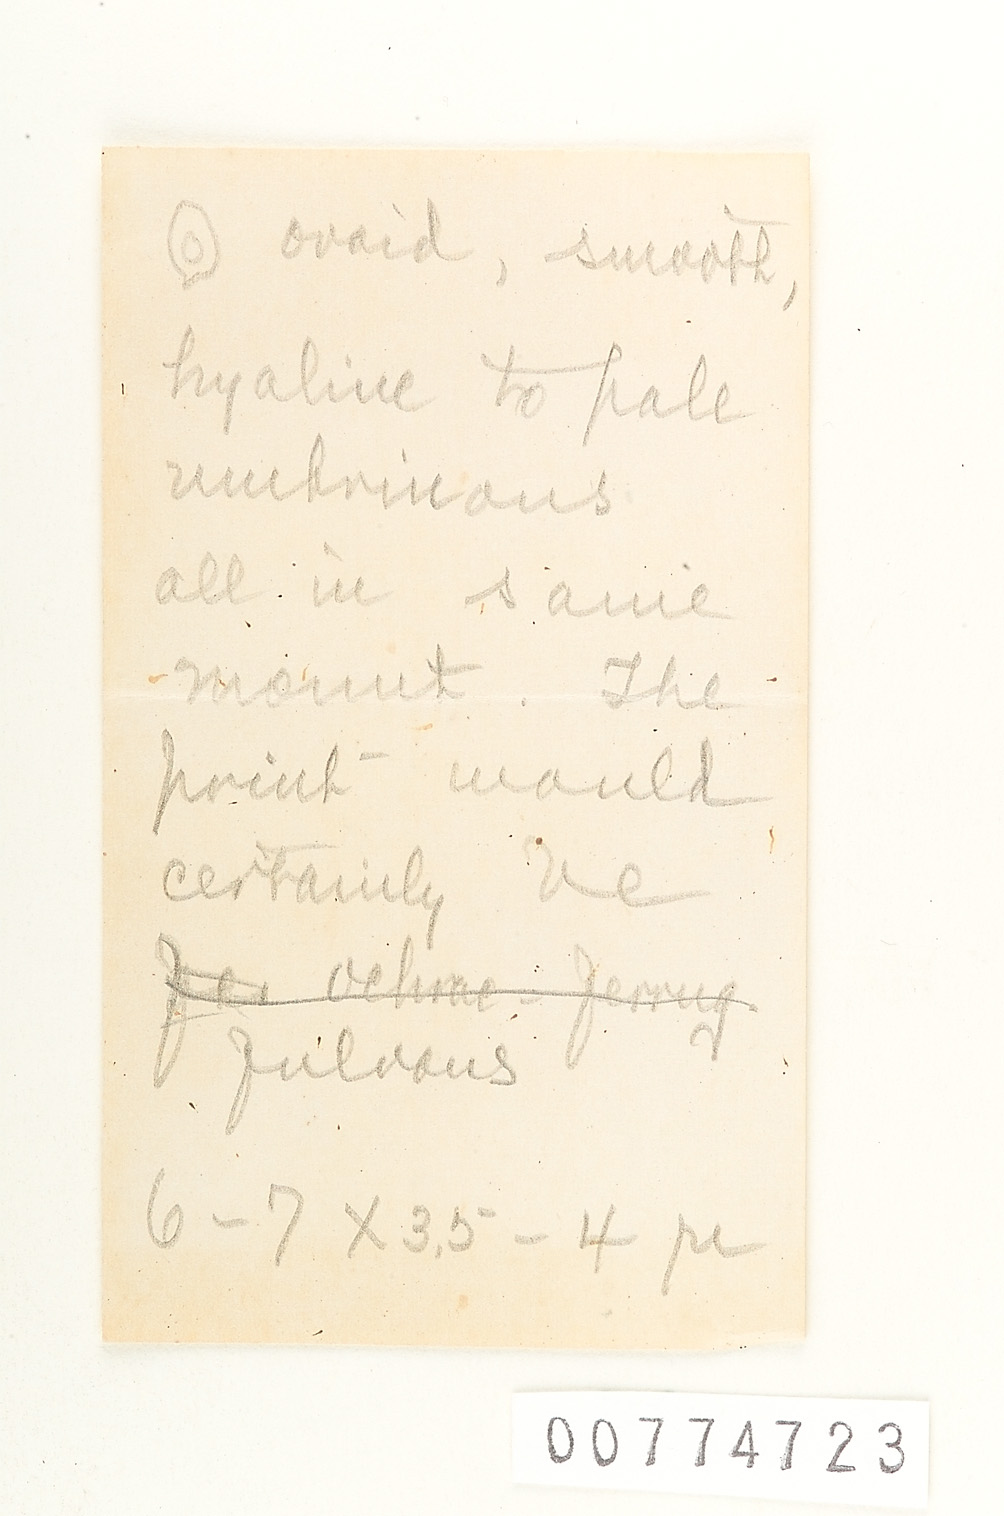 ovoid, smooth,
hyaline to pale
umbrinous
all in same
mount. The
print would
certainly be
ochrac - ferrug.
fulvous
6-7 X 3.5-4 µ
00774723